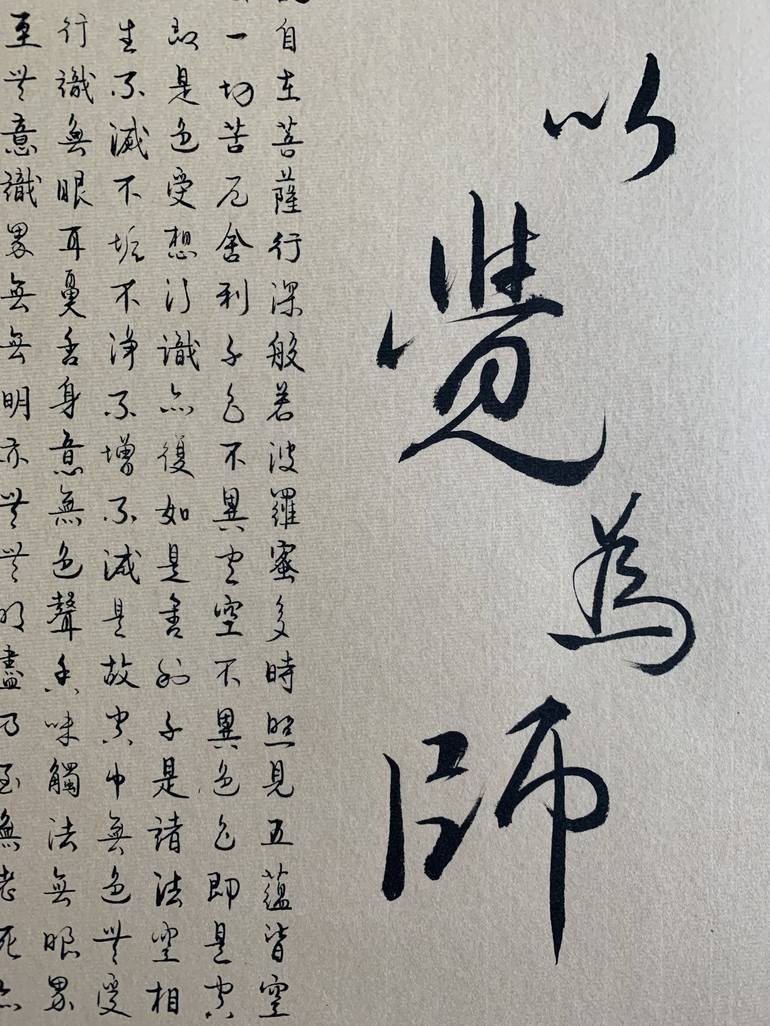 以覺為師
自在菩薩行深般若波羅蜜多時照見五蘊皆空
一切苦厄舍利子色不異空空不異色色即是空
即是色受想行識亦復如是舍利子是諸法空相
生不滅不垢不淨不增不減是故空中無色無受
行識無眼耳鼻舌身意無色聲香味觸法無眼界
至無意識界無無明亦無無明盡乃至無老死亦